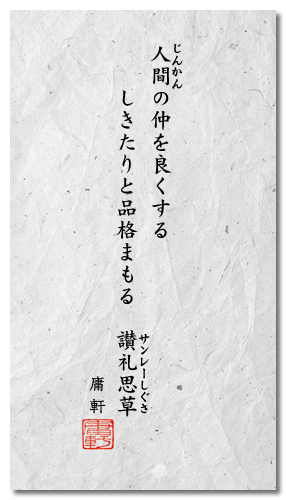 人間の仲を良くする
じんかん
しきたりと品格まもる　讃礼思草
サンレーしぐさ
庸軒
庸軒